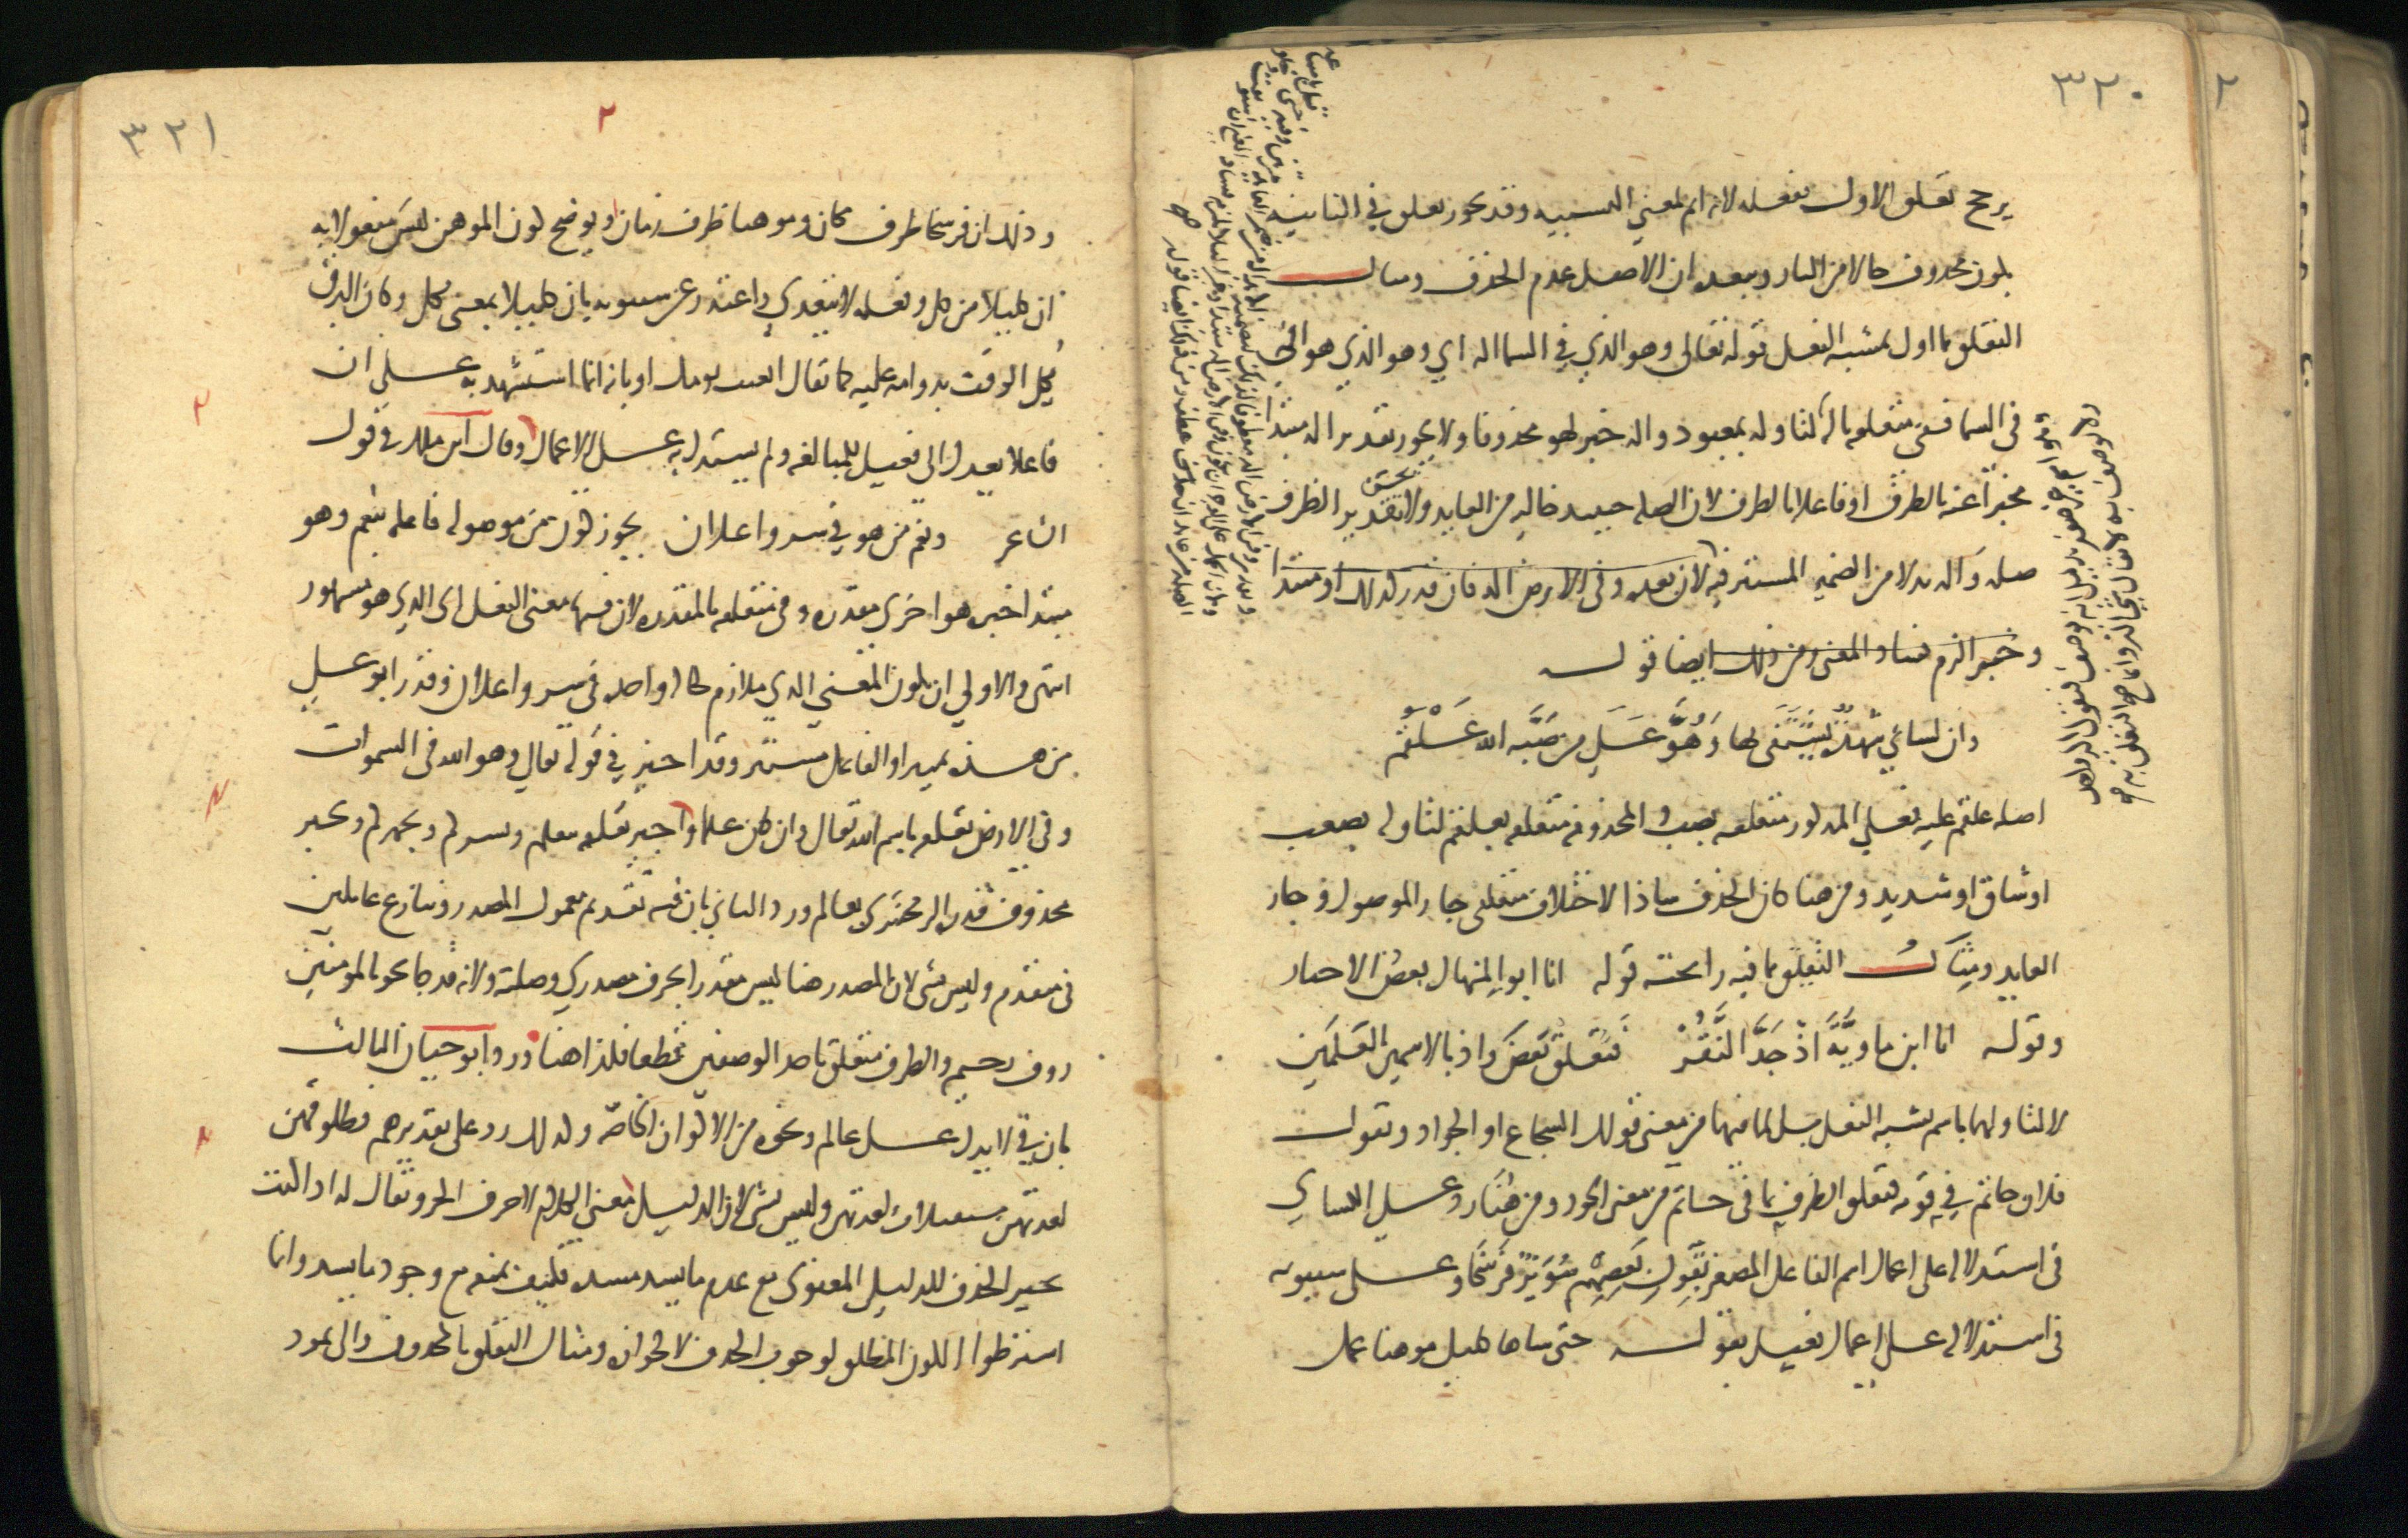 ٣٢٠
يرجح تعلق الاول بفعله لانه اتم لمعنى التشبيه وقد يجوز تعلق في الثانية
بكون محذوف حالا من النار ويبعده ان الاصل عدم الحذف ومثال
التعلق بما اول بمشبه الفعل قوله تعالى وهو الذي في السما اله اي وهو الذي هو اله
في السما ففي متعلقه باله لتاوله بمعبود واله خبر لهو محذوفا ولا يجوز تقدير اله مبتدا
مخبرا عنه بالظرف او فاعلا بالظرف لان الصلة حينئذ خالية من العايد ولا يحسن تقدير الظرف
صلة واله بدلا من الضمير المستتر فيه لان بعده وفي الارض اله فان قدر كذلك او مبتدا
وخبر الزم فساد المعنى ومن ذلك ايضا قوله
وان لساني شهدة يشتفى بها وهو على من صبه الله علقم
اصله علقم عليه فعلى المذكور متعلقه بصب والمحذوفة متعلقه بعلقم لتاوله بصعب
او شاق او شديد ومن هنا كان الحذف شاذا لاختلاف متعلقي جار الموصول وجار
العايد ومثال التعلق بما فيه رائحته قوله انا ابو المنهال بعض الاحيان
وقوله انا ابن ماوية اذ جد النقر فتعلق بعض واذ بالاسمين العلمين
لا لتاولهما باسم يشبه الفعل بل لما فيهما من معنى قولك الشجاع او الجواد وتقول
فلان حاتم في قومه فتعلق الظرف بما في حاتم من معنى الجود ومن هنا رد على الكسائي
في استدلاله على اعمال اسم الفاعل المصغر بقول بعضهم سويرا فرسخا وعلى سيبويه
في استدلاله على اعمال فعيل بقوله حتى شاها كليل موهنا عمل
٣٢١
وذلك ان فرسخا ظرف مكان وموهنا ظرف زمان ويوضح كون الموهن ليس مفعولا به
ان كليلا من كل وفعله لا يتعدى واعتذر عن سيبويه بان كليلا بمعنى مكل وكان البرق
يكل الوقت بدوامه عليه كما يقال اتعبت يومك او بانه انما استشهد به على ان
فاعلا يعدل الى فعيل للمبالغة ولم يستدل به على الاعمال وقال ابن مالك في قول
الشاعر ونعم من هو في سر واعلان يجوز كون من موصولة فاعلة بنعم وهو
مبتدا خبره هو اخرى مقدرة وفي متعلقه بالمقدرة لان فيها معنى الفعل اي الذي هو مشهور
انتهى والاولى ان يكون المعنى الذي ملازم لحالة واحدة في سر واعلان وقدر ابو علي
من هذه تمييزا والفاعل مستتر وقد اجيز في قوله تعالى وهو الله في السموات
وفي الارض تعلقه باسم الله تعالى وان كان علما واجيز تعلقه بيعلم وبسركم وبجهركم وبخبر
محذوف قدره الزمخشري بعالم ورد الثاني بان فيه تقديم معمول المصدر وتنازع عاملين
في متقدم وليس بشي لان المصدر هنا ليس مقدرا بحرف مصدري وصلته ولانه قد جا نحو بالمومنين
روف رحيم والظرف متعلق باحد الوصفين قطعا فكذا هنا ورد ابو حيان الثالث
بان في لا تدل على عالم ونحوه من الاكوان الخاصة وكذلك رد على تقديرهم فطلقوهن
لعدتهن مستقبلات لعدتهن وليس بشي لان الدليل معنى الكلام لا حرف الجر وتقال له اذا كنت
تجيز الحذف للدليل المعنوي مع عدم ما يسد مسده فكيف تمنعه مع وجود ما يسد وانما
اشترطوا الكون المطلق لوجوب الحذف لا لجوازه ومثال التعلق بالمحذوف والى ثمود